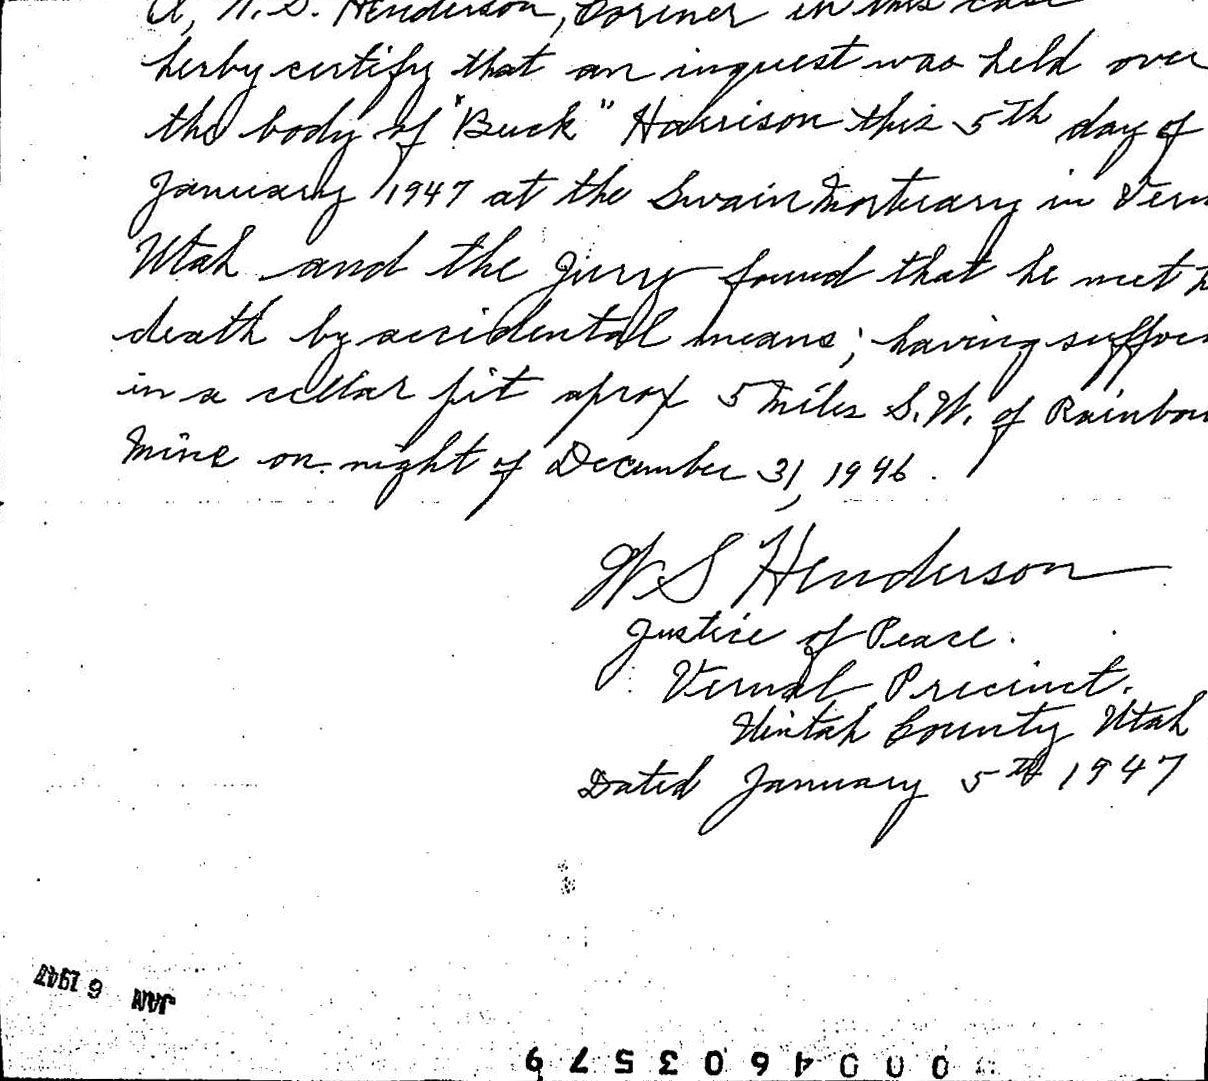 I, W. S. Henderson, Coriner in this case
herby certify that an inquest was held over
the body of "Buck" Harrison this 5th day of
January 1947 at the Swain Mortuary in Vern
Utah and the jury found that he meet h
death by accidental means; having suffoc
in a cellar pit aprox 5 miles S.W. of Rainbow
Mine on night of December 31, 1946.
W S Henderson
Justice of Peace.
Vernal Precinct.
Uintah County Utah
Dated January 5th 1947
JAN 6 1947
00004603579